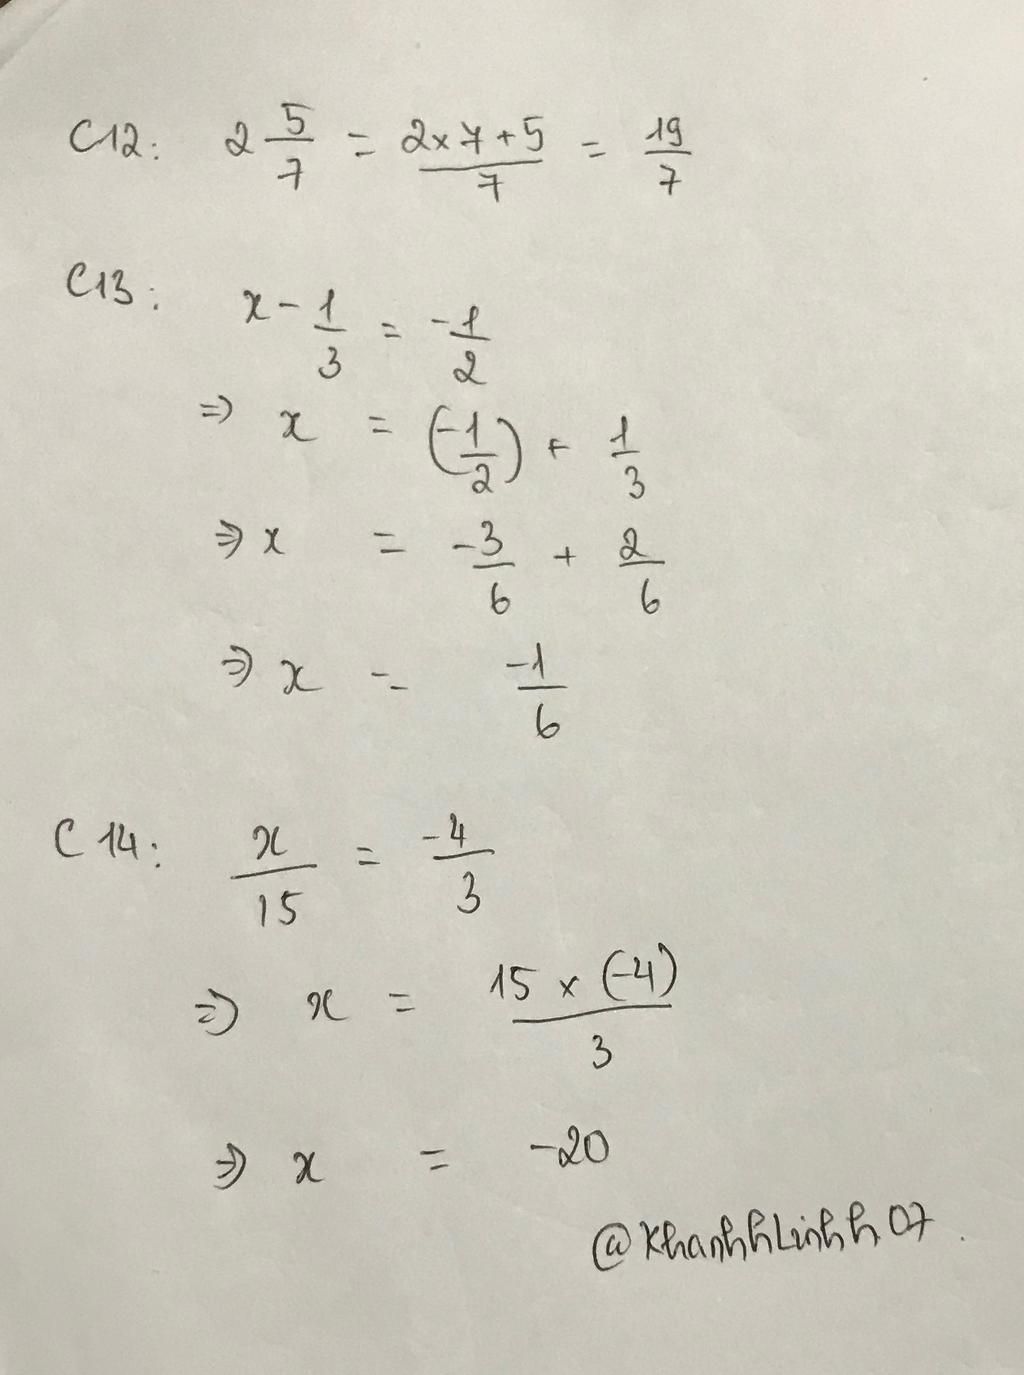 C12: 2 5/7 = (2x7+5)/7 = 19/7
C13: x - 1/3 = -1/2
=> x = (-1/2) + 1/3
=> x = -3/6 + 2/6
=> x = -1/6
C14: x/15 = -4/3
=> x = 15 x (-4)/3
=> x = -20
@KhanhhLinhh07.